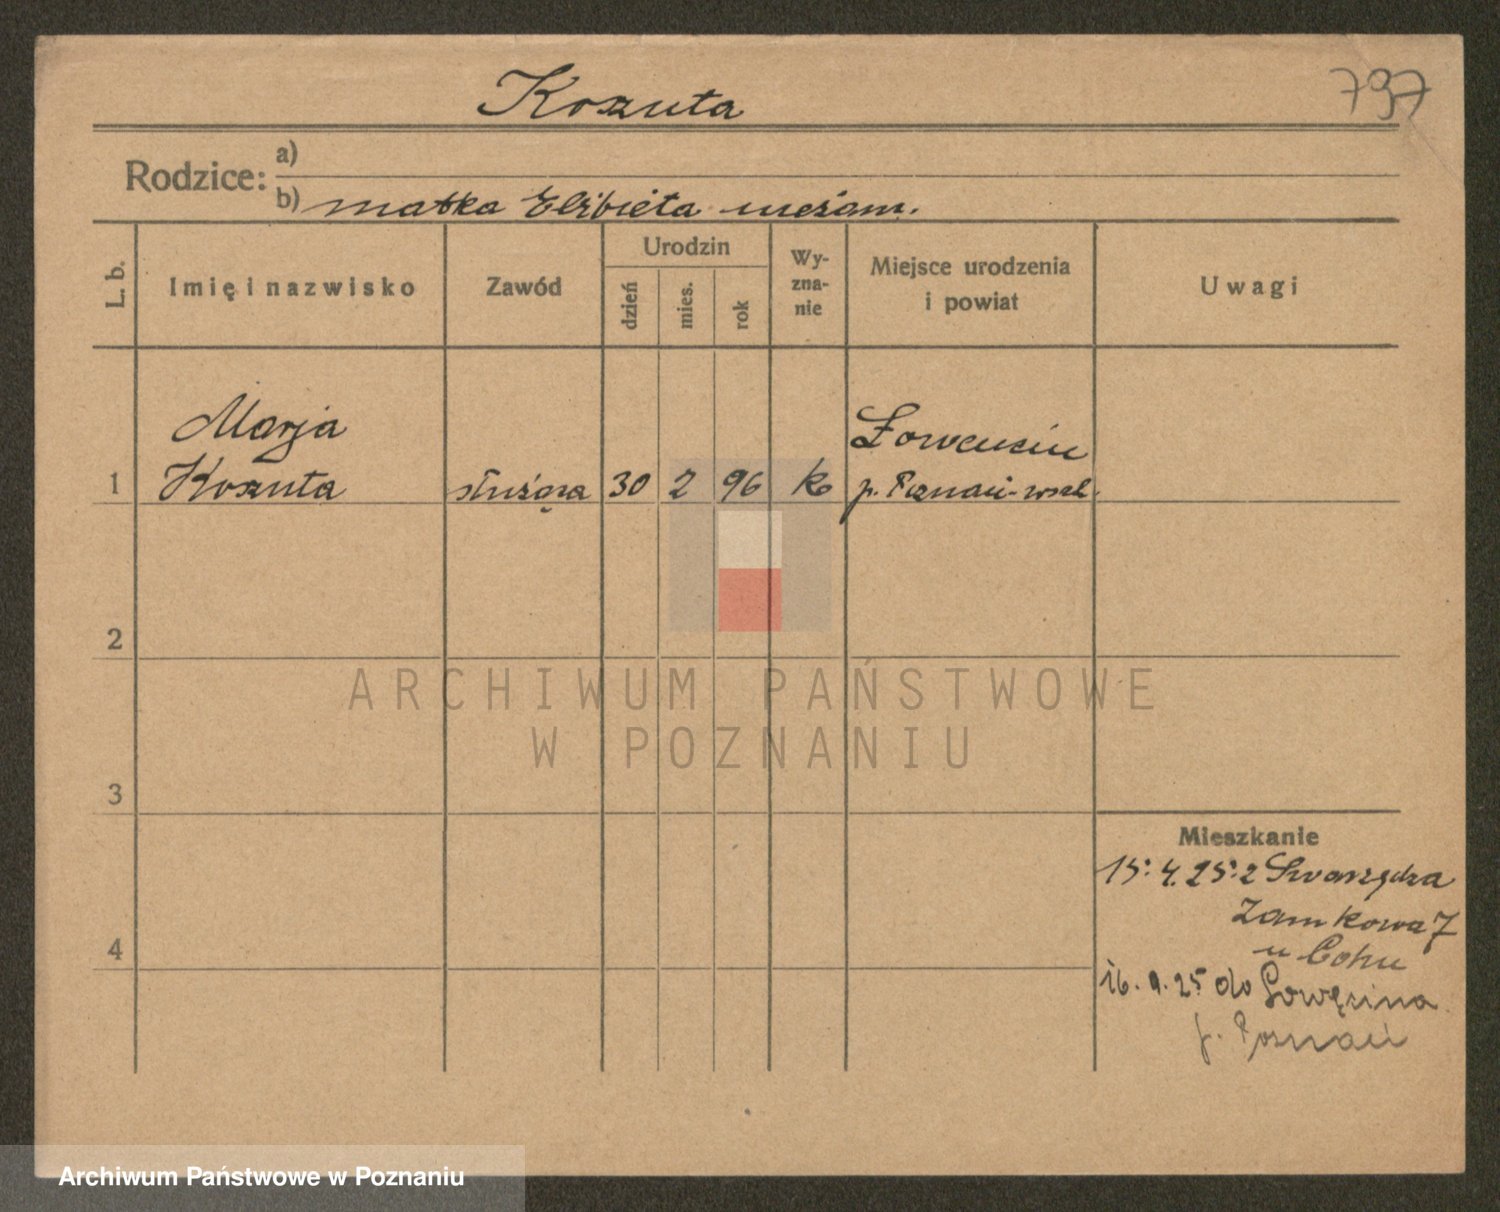 Kozuta
797
Rodzice:
a)
b) matka Elżbieta niezam.
L. b.
Imię i nazwisko
Zawód
Urodzin
dzień
mies.
rok
Wy-
zna-
nie
Miejsce urodzenia
i powiat
Uwagi
Marja
1 Kozuta służąca 30 2 96 k
p. Poznań-wsch.
2
3
4
Mieszkanie
15. 4. 25 z Swarzędza
Zamkowa 7
u Cohu
16. 9. 25 do Łowęcina
p. Poznań
ARCHIWUM PAŃSTWOWE
W POZNANIU
Archiwum Państwowe w Poznaniu